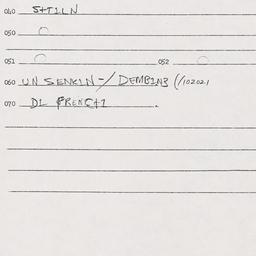 040 S+T1LN
050
051 052
060 UN SENKIN-/ DEMBIN3 (/102021
070 DL FRENCH1 .